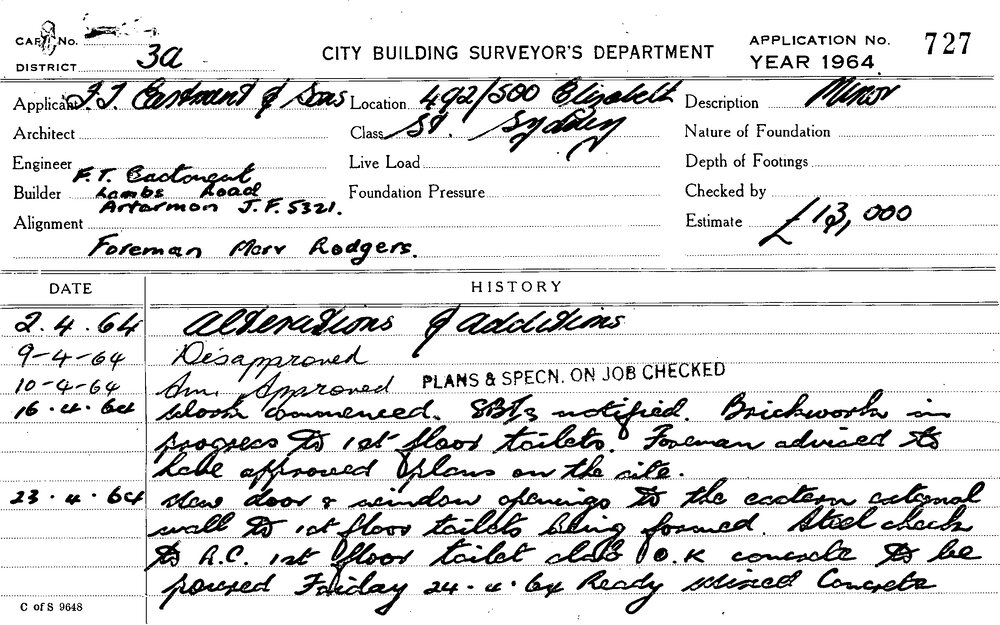 CARD No.
DISTRICT 3a
CITY BUILDING SURVEYOR'S DEPARTMENT
APPLICATION No. 727
YEAR 1964
Applicant F.T. Eastment & Sons Location 492/500 Elizabeth Description Minor
Architect Class St. Sydney Nature of Foundation
Engineer Live Load Depth of Footings
F.T. Eastment
Builder Lambs Road Foundation Pressure Checked by
Artarmon J.F. 5321.
Alignment Estimate £13,000
Foreman Merv Rodgers.
DATE HISTORY
2.4.64 Alterations & additions
9-4-64 Disapproved
10-4-64 Am. Approved PLANS & SPECN. ON JOB CHECKED
16.4.64 Work commenced. notified. Brickwork in
progress to 1st floor toilets. Foreman advised to
have approved plans on the site.
23.4.64 New door & window openings to the eastern external
wall to 1st floor toilets being formed. Steel check
to R.C. 1st floor toilet slab O.K concrete to be
poured Friday 24.4.64 Ready Mixed Concrete
C of S 9648